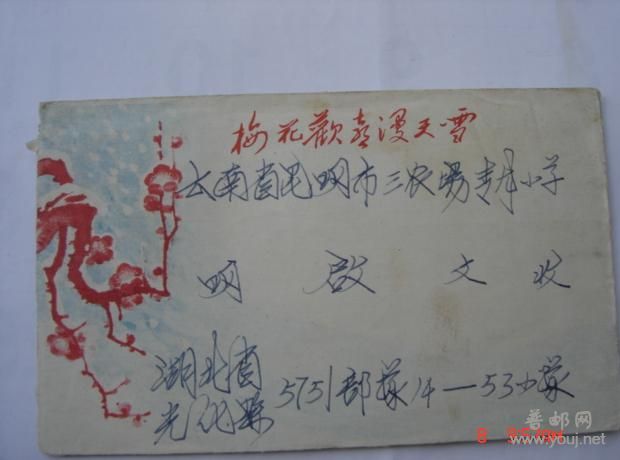 梅花歡喜漫天雪
云南省昆明市三农场青月小学
明啟文收
湖北省
光化縣5751部隊14—53小隊
普邮网
www.youj.net